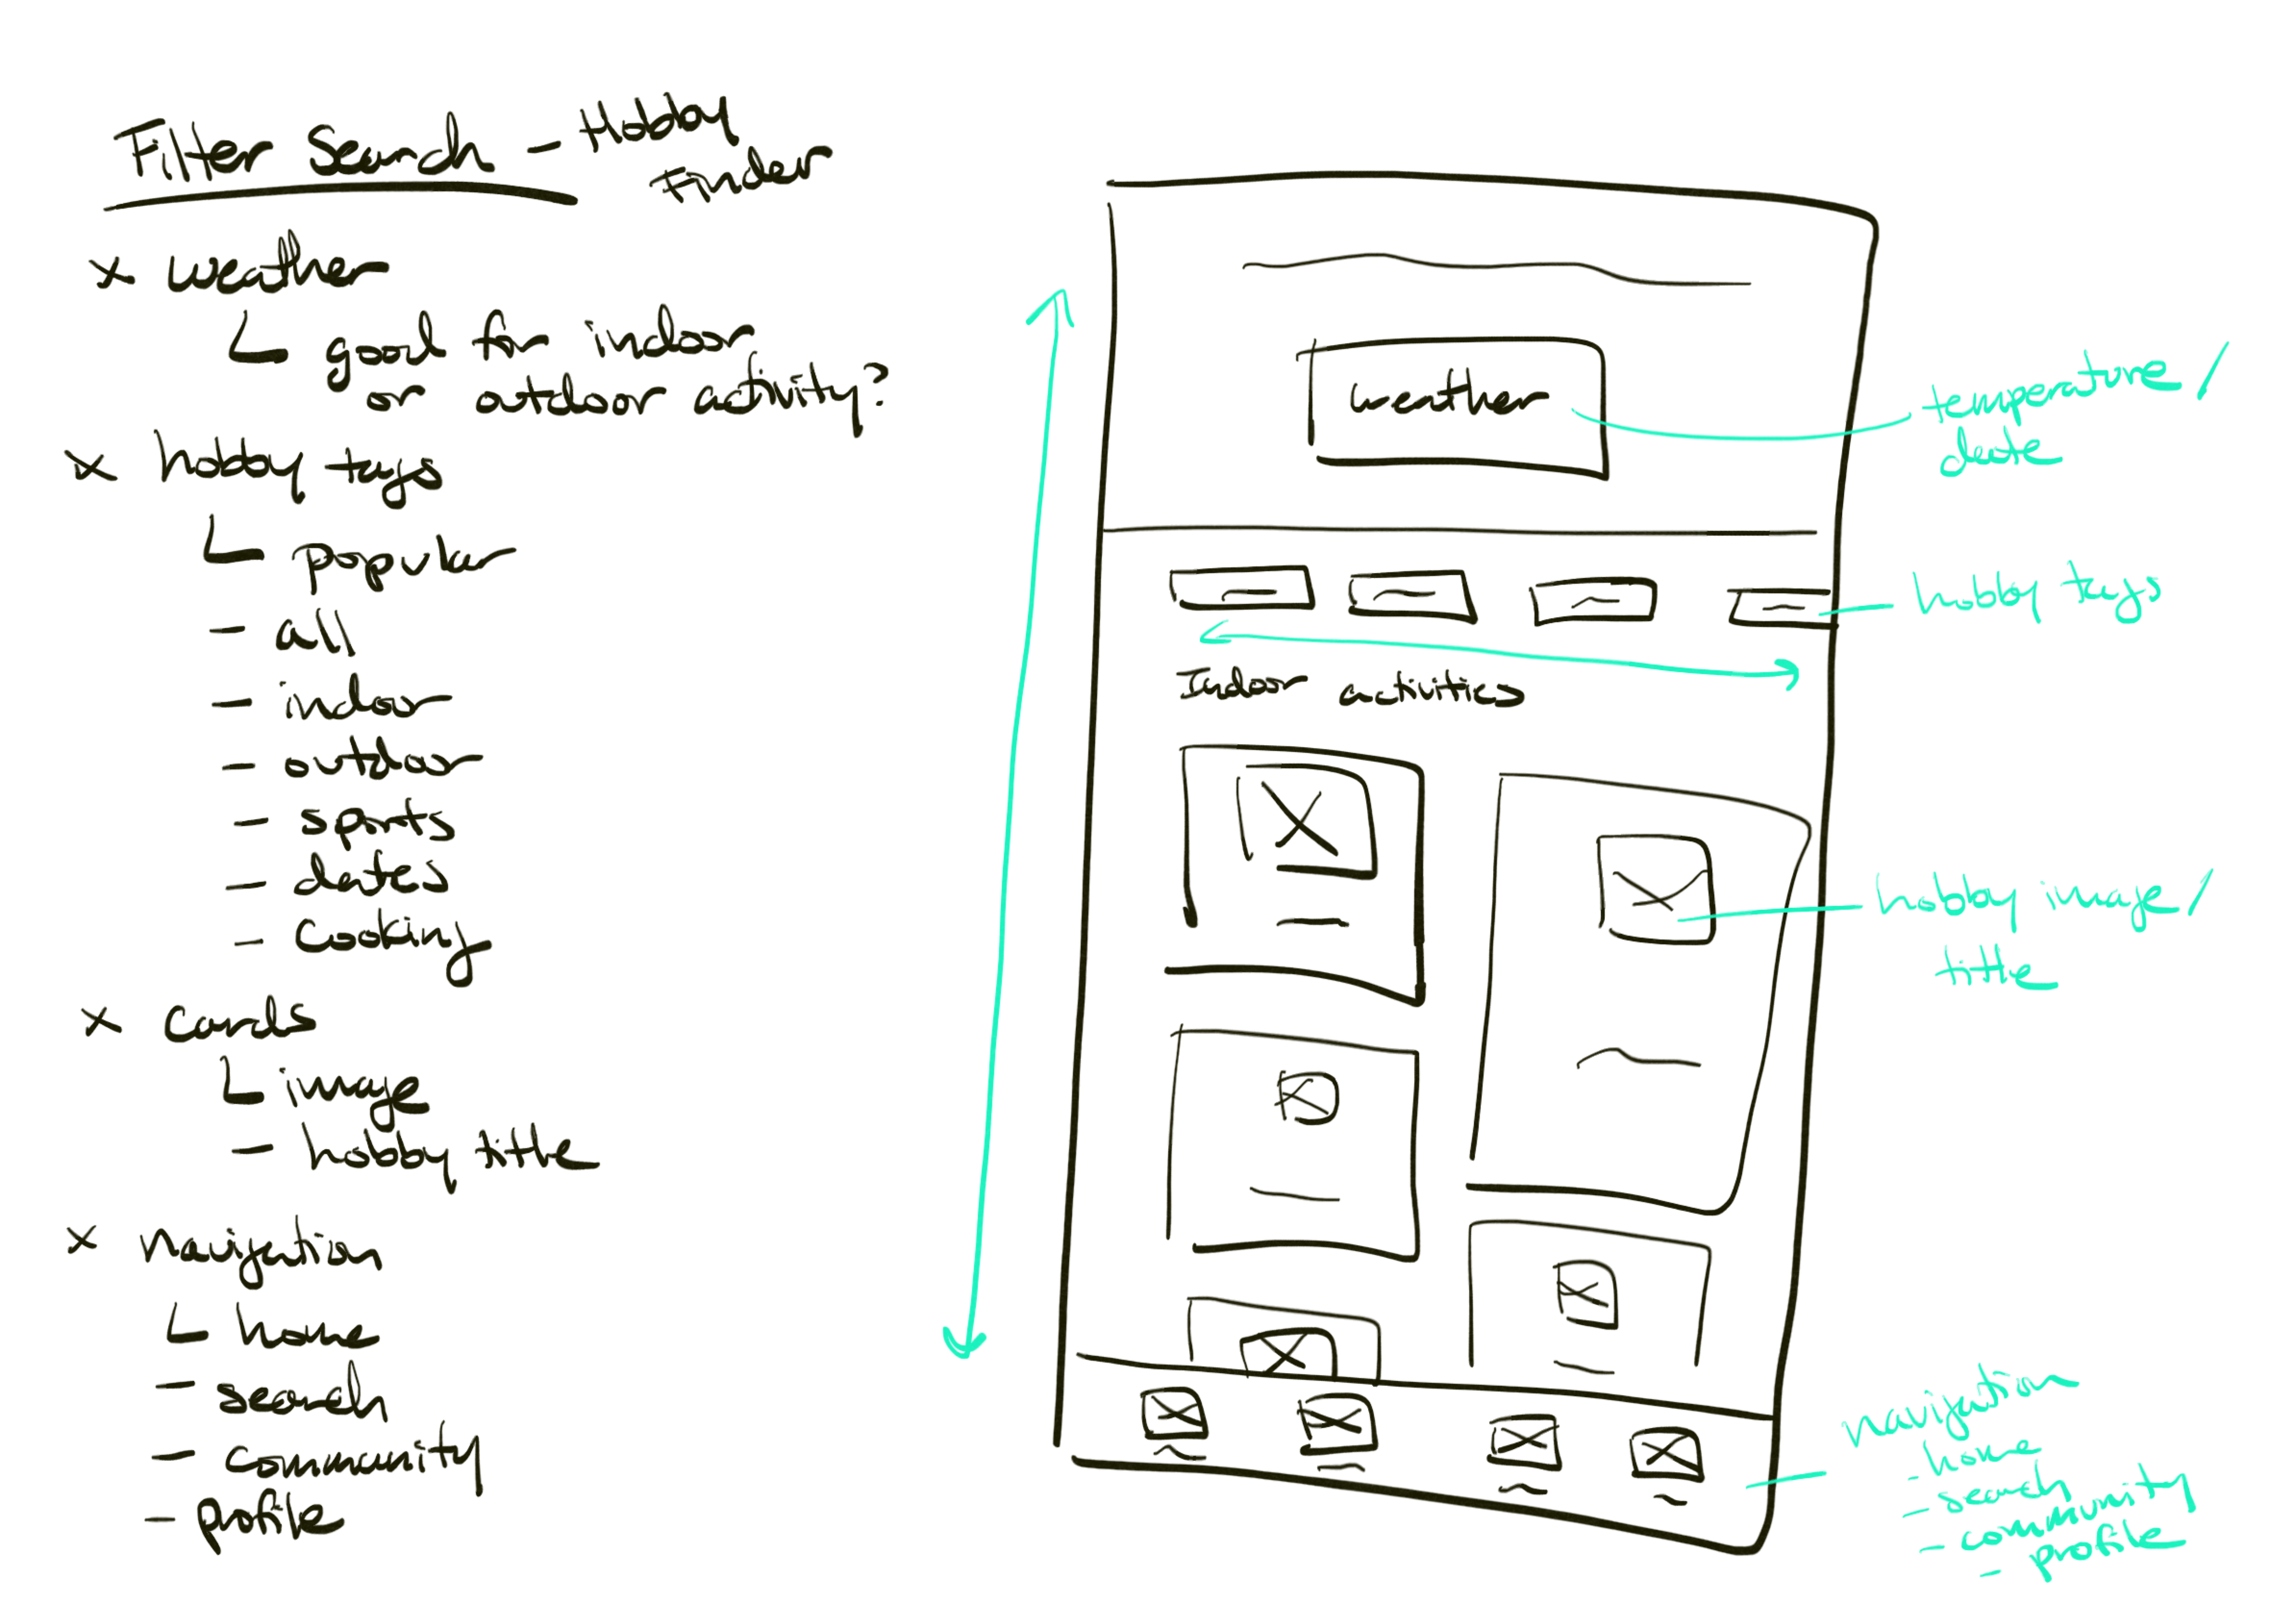 Filter Search – Hobby
Finder
x weather
good for indoor
or outdoor activity?
x hobby tags
popular
- all
- indoor
- outdoor
- sports
- dates
- cooking
x Cards
image
- hobby title
x navigation
home
- search
- community
- profile
weather
Indoor activities
temperature/
date
hobby tags
hobby image/
title
navigation
- home
- search
- community
- profile